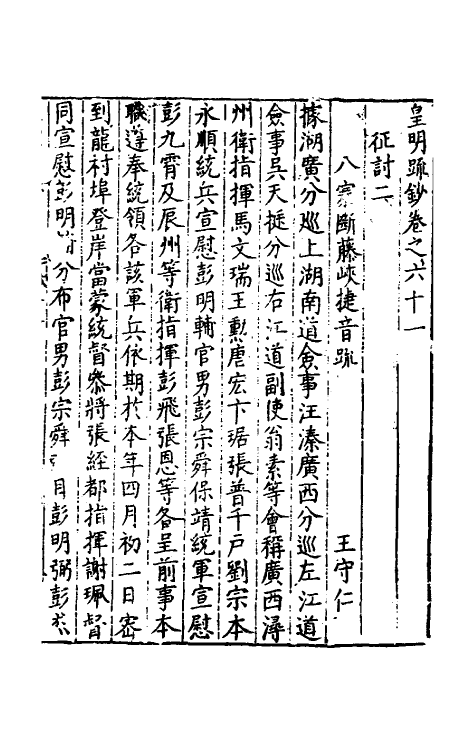 皇明疏鈔卷之六十一
征討二
八寨斷藤峽捷音疏 王守仁
據湖廣分巡上湖南道僉事汪溱廣西分巡左江道
僉事吳天挺分巡右江道副使翁素等會稱廣西潯
州衛指揮馬文瑞王勲唐宏卞琚張普千戶劉宗本
永順統兵宣慰彭明輔官男彭宗舜保靖統軍宣慰
彭九霄及辰州等衛指揮彭飛張恩等各呈前事本
職遵奉統領各該軍兵依期於本年四月初二日密
到龍村埠登岸當蒙統督叅將張經都指揮謝珮督
同宣慰彭明 分布官男彭宗舜 目彭明弼彭